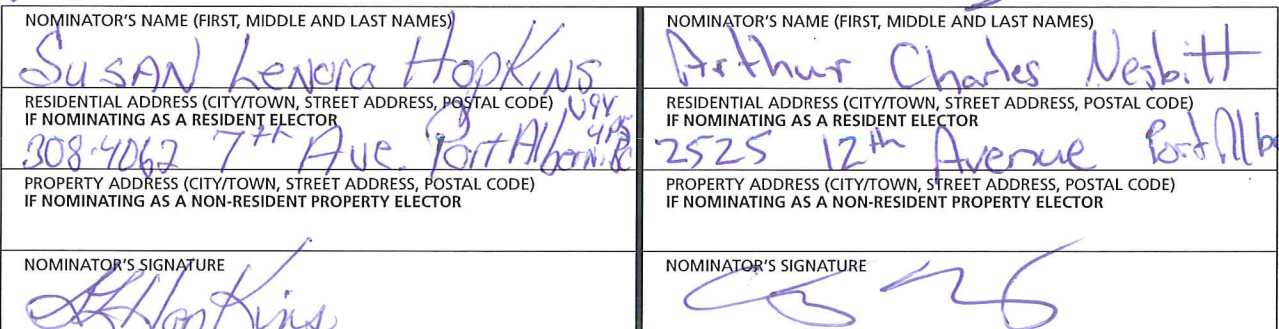 NOMINATOR'S NAME (FIRST, MIDDLE AND LAST NAMES)
Susan Lenora Hopkins
RESIDENTIAL ADDRESS (CITY/TOWN, STREET ADDRESS, POSTAL CODE)
IF NOMINATING AS A RESIDENT ELECTOR
308-4062 7th Ave. Port Alberni BC
PROPERTY ADDRESS (CITY/TOWN, STREET ADDRESS, POSTAL CODE)
IF NOMINATING AS A NON-RESIDENT PROPERTY ELECTOR
NOMINATOR'S SIGNATURE
NOMINATOR'S NAME (FIRST, MIDDLE AND LAST NAMES)
Arthur Charles Nesbitt
RESIDENTIAL ADDRESS (CITY/TOWN, STREET ADDRESS, POSTAL CODE)
IF NOMINATING AS A RESIDENT ELECTOR
2525 12th Avenue Port Alb
PROPERTY ADDRESS (CITY/TOWN, STREET ADDRESS, POSTAL CODE)
IF NOMINATING AS A NON-RESIDENT PROPERTY ELECTOR
NOMINATOR'S SIGNATURE